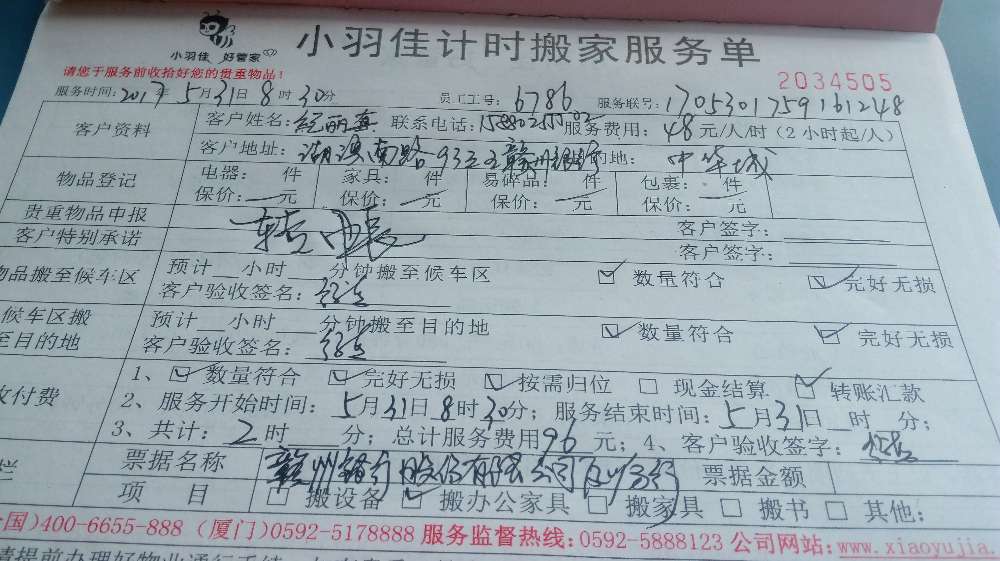 小羽佳 好管家
小羽佳计时搬家服务单
请您于服务前收拾好您的贵重物品！
2034505
服务时间：2017年5月31日8时30分 员工工号：6786 服务联号：1705301759161248
客户资料 客户姓名： 联系电话： 服务费用：48元/人/时（2小时起/人）
客户地址： 南路93 赣州银行 的地：中华城
物品登记 电器： 件 家具： 件 易碎品： 件 包裹： 件
保价： 元 保价： 元 保价： 元 保价： 元
贵重物品申报 客户签字：
客户特别承诺 客户签字：
物品搬至候车区 预计__小时____分钟搬至候车区 ☑数量符合 ☑完好无损
客户验收签名：
候车区搬至目的地 预计__小时____分钟搬至目的地 ☑数量符合 ☑完好无损
客户验收签名：
收付费 1、☑数量符合 ☑完好无损 ☑按需归位 □现金结算 ☑转账汇款
2、服务开始时间：5月31日8时30分；服务结束时间：5月31日__时__分；
3、共计：2时____分；总计服务费用96元；4、客户验收签字：
栏 票据名称 赣州银行股份有限公司厦门分行 票据金额
项 目 □搬设备 ☑搬办公家具 □搬家具 □搬书 □其他；
国)400-6655-888（厦门)0592-5178888 服务监督热线：0592-5888123 公司网站：www.xiaoyujia.
请提前办理好物业通行手续